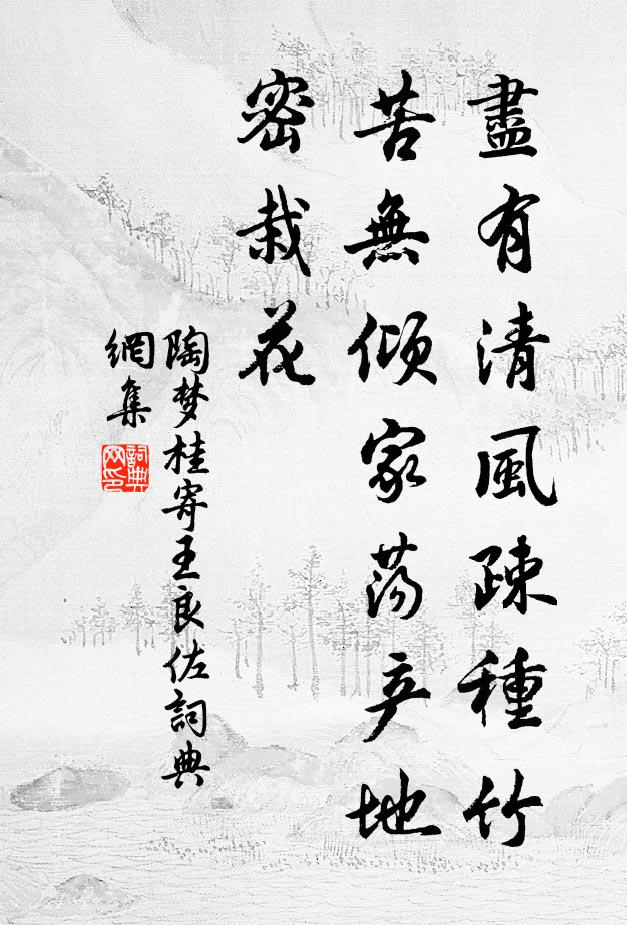 盡有清風疎種竹
苦無傾家荡产地
密栽花
陶梦桂寄王良佐詞典
網集
詞典
网印